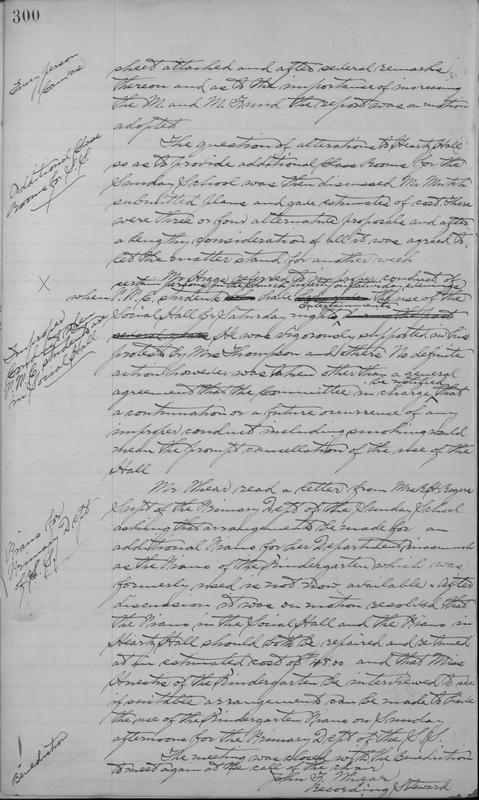 300
Every person
Canvas
sheet attached and after several remarks
thereon and as to the importance of increasing
the M. and M. Fund the report was on motion
adopted
Additional Class
Rooms for S.S.
The question of alterations to Heart Hall
so as to provide additional Class Rooms for the
Sunday School was then discussed Mr
submitted plans and gave estimates of cost. There
were three or four alternative proposals and after
a lengthy consideration of all it was agreed to
let the matter stand for another week
X
Improper
Conduct
students
in Social Hall
Mr referred to improper conduct of
certain persons in the Church property on Saturday evenings
when students have use of the
Social Hall for Saturday night Entertainments
He was vigorously supported in his
protest by Mrs Thompson and others No definite
action however was taken other than a general
agreement that the Committee in charge be notified that
a continuation or a future occurrence of any
improper conduct including smoking would
mean the prompt cancellation of the use of the
Hall
Piano for
Primary Dept
of S.S.
Mr Whear read a letter from Mrs Rogers
Supt of the Primary Dept of the Sunday School
asking that arrangements be made for an
additional Piano for her Department inasmuch
as the Piano of the Kindergarten which was
formerly used is not now available. After
discussion it was on motion resolved that
the Piano in the Social Hall and the Piano in
Heart Hall should both be repaired and retuned
at an estimated cost of $48.00 and that Miss
of the Kindergarten be interviewed to see
if suitable arrangements can be made to have
the use of the Kindergarten Piano on Sunday
afternoons for the Primary Dept of the S.S.
Benediction
The meeting was closed with the Benediction
to meet again at the call of the chair
John F. Whear
Recording Steward